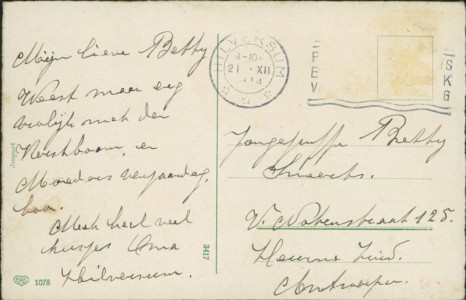 Mijn lieve Betty
Weest maar erg
vrolijk met den
Kerstboom, en
Moeders verjaardag,
hoor.
Met heel veel
kusjes Oma
Hilversum.
HILVERSUM
9-10
21 XII
Jongejuffr Betty
Smeets.
V. straat 125.
Antwerpen.
3417
1078